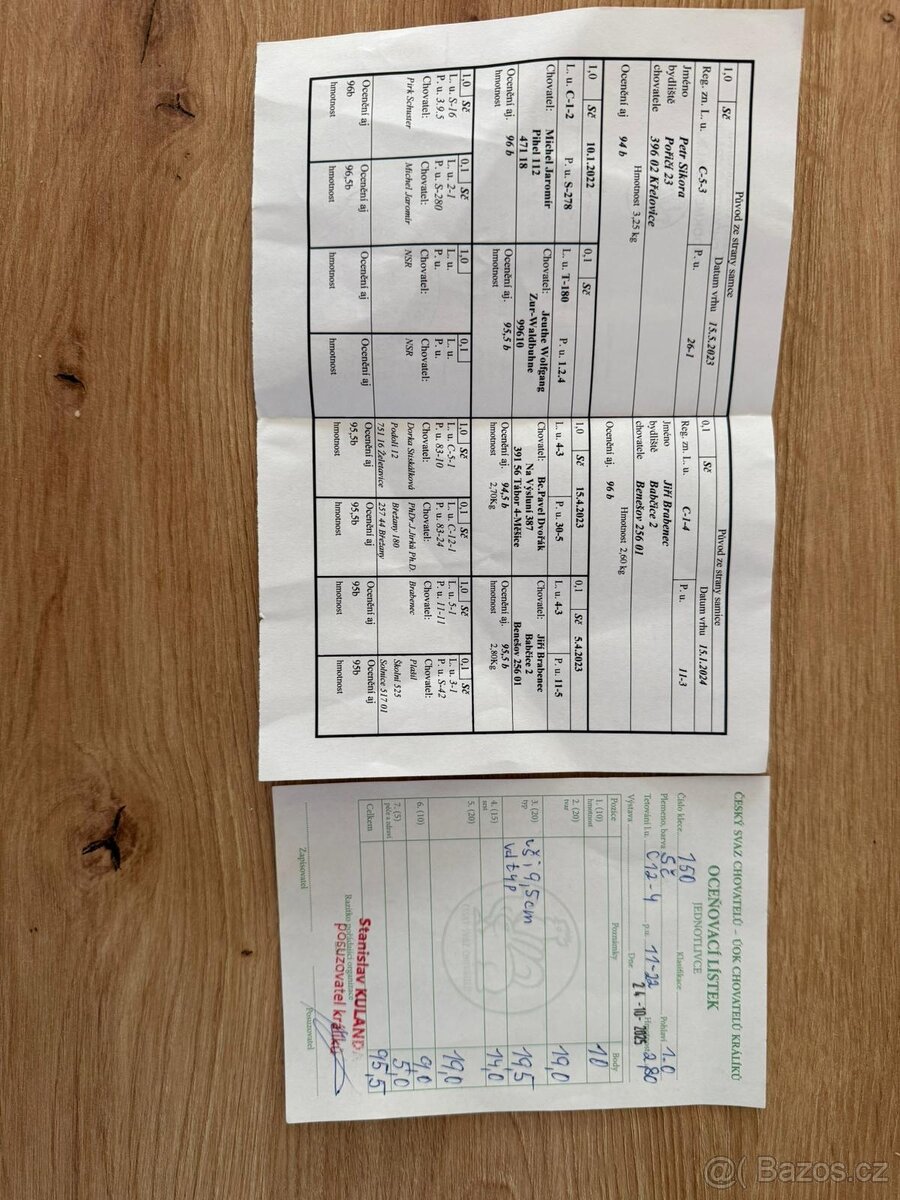 Původ ze strany samce
1,0 Sč Datum vrhu 15.5.2023
Reg. zn. L. u. C-5-3 P. u. 26-1
Jméno Petr Sikora
bydliště Poříčí 23
chovatele 396 02 Křelovice
Hmotnost 3,25 kg
Ocenění aj 94 b
1,0 Sč 10.1.2022
L. u. C-1-2 P. u. S-278
Chovatel: Michel Jaromír
Pihel 112
471 18
Ocenění aj 96 b
hmotnost
0,1 Sč
L. u. T-180 P. u. 1.2.4
Chovatel: Jeuthe Wolfgang
Zur-Waldbuhne
99610
Ocenění aj. 95,5 b
hmotnost
1,0 Sč
L. u. S-16
P. u. 3.9.5
Chovatel:
Pirk Schuster
Ocenění aj
96b
hmotnost
0,1 Sč
L. u. 2-1
P. u. S-280
Chovatel:
Michel Jaromír
Ocenění aj
96,5b
hmotnost
1,0
L. u.
P. u.
Chovatel:
NSR
Ocenění aj
hmotnost
0,1
L. u.
P. u.
Chovatel:
NSR
Ocenění aj
hmotnost
Původ ze strany samice
0,1 Sč Datum vrhu 15.1.2024
Reg. zn. L. u. C-1-4 P. u. 11-3
Jméno Jiří Brabenec
bydliště Babčice 2
chovatele Benešov 256 01
Hmotnost 2,60 kg
Ocenění aj. 96 b
1,0 Sč 15.4.2023
L. u. 4-3 P. u. 30-5
Chovatel: Bc.Pavel Dvořák
Na Výsluní 387
391 56 Tábor 4-Měšice
Ocenění aj. 94,5 b
hmotnost 2,70Kg
0,1 Sč 5.4.2023
L. u. 4-3 P. u. 11-5
Chovatel: Jiří Brabenec
Babčice 2
Benešov 256 01
Ocenění aj. 95,5 b
hmotnost 2,80Kg
1,0 Sč
L. u. C-5-1
P. u. 83-10
Chovatel:
Dorka Stiskálková
Podolí 12
751 16 Želatovice
Ocenění aj
95,5b
hmotnost
0,1 Sč
L. u. C-12-1
P. u. 83-24
Chovatel:
PhDr J.Jirků Ph.D.
Břežany 180
257 44 Břežany
Ocenění aj
95,5b
hmotnost
1,0 Sč
L. u. 5-1
P. u. 11-11
Chovatel:
Brabenec
Ocenění aj
95b
hmotnost
0,1 Sč
L. u. 3-1
P. u. S-42
Chovatel:
Plašil
Školní 525
Solnice 517 01
Ocenění aj
95b
hmotnost
ČESKÝ SVAZ CHOVATELŮ – ÚOK CHOVATELŮ KRÁLÍKŮ
OCEŇOVACÍ LÍSTEK
JEDNOTLIVCE
Číslo klece 150 Klasifikace
Plemeno, barva Sč Pohlaví 1.0
Tetování l.u. C12-4 p.u. 11-22 2,80
Výstava Dne 24-10-2025
Pozice Poznámky Body
1. (10) hmotnost 10
2. (20) tvar 19,0
3. (20) typ uši 9,5cm vd typ 19,5
4. (15) srst 14,0
5. (20) 19,0
6. (10) 9,0
7. (5) péče a zdraví 5,0
Celkem 95,5
Razítko pořádající organizace
Stanislav KULAND
posuzovatel králíků
Zapisovatel Posuzovatel
@ Bazos.cz